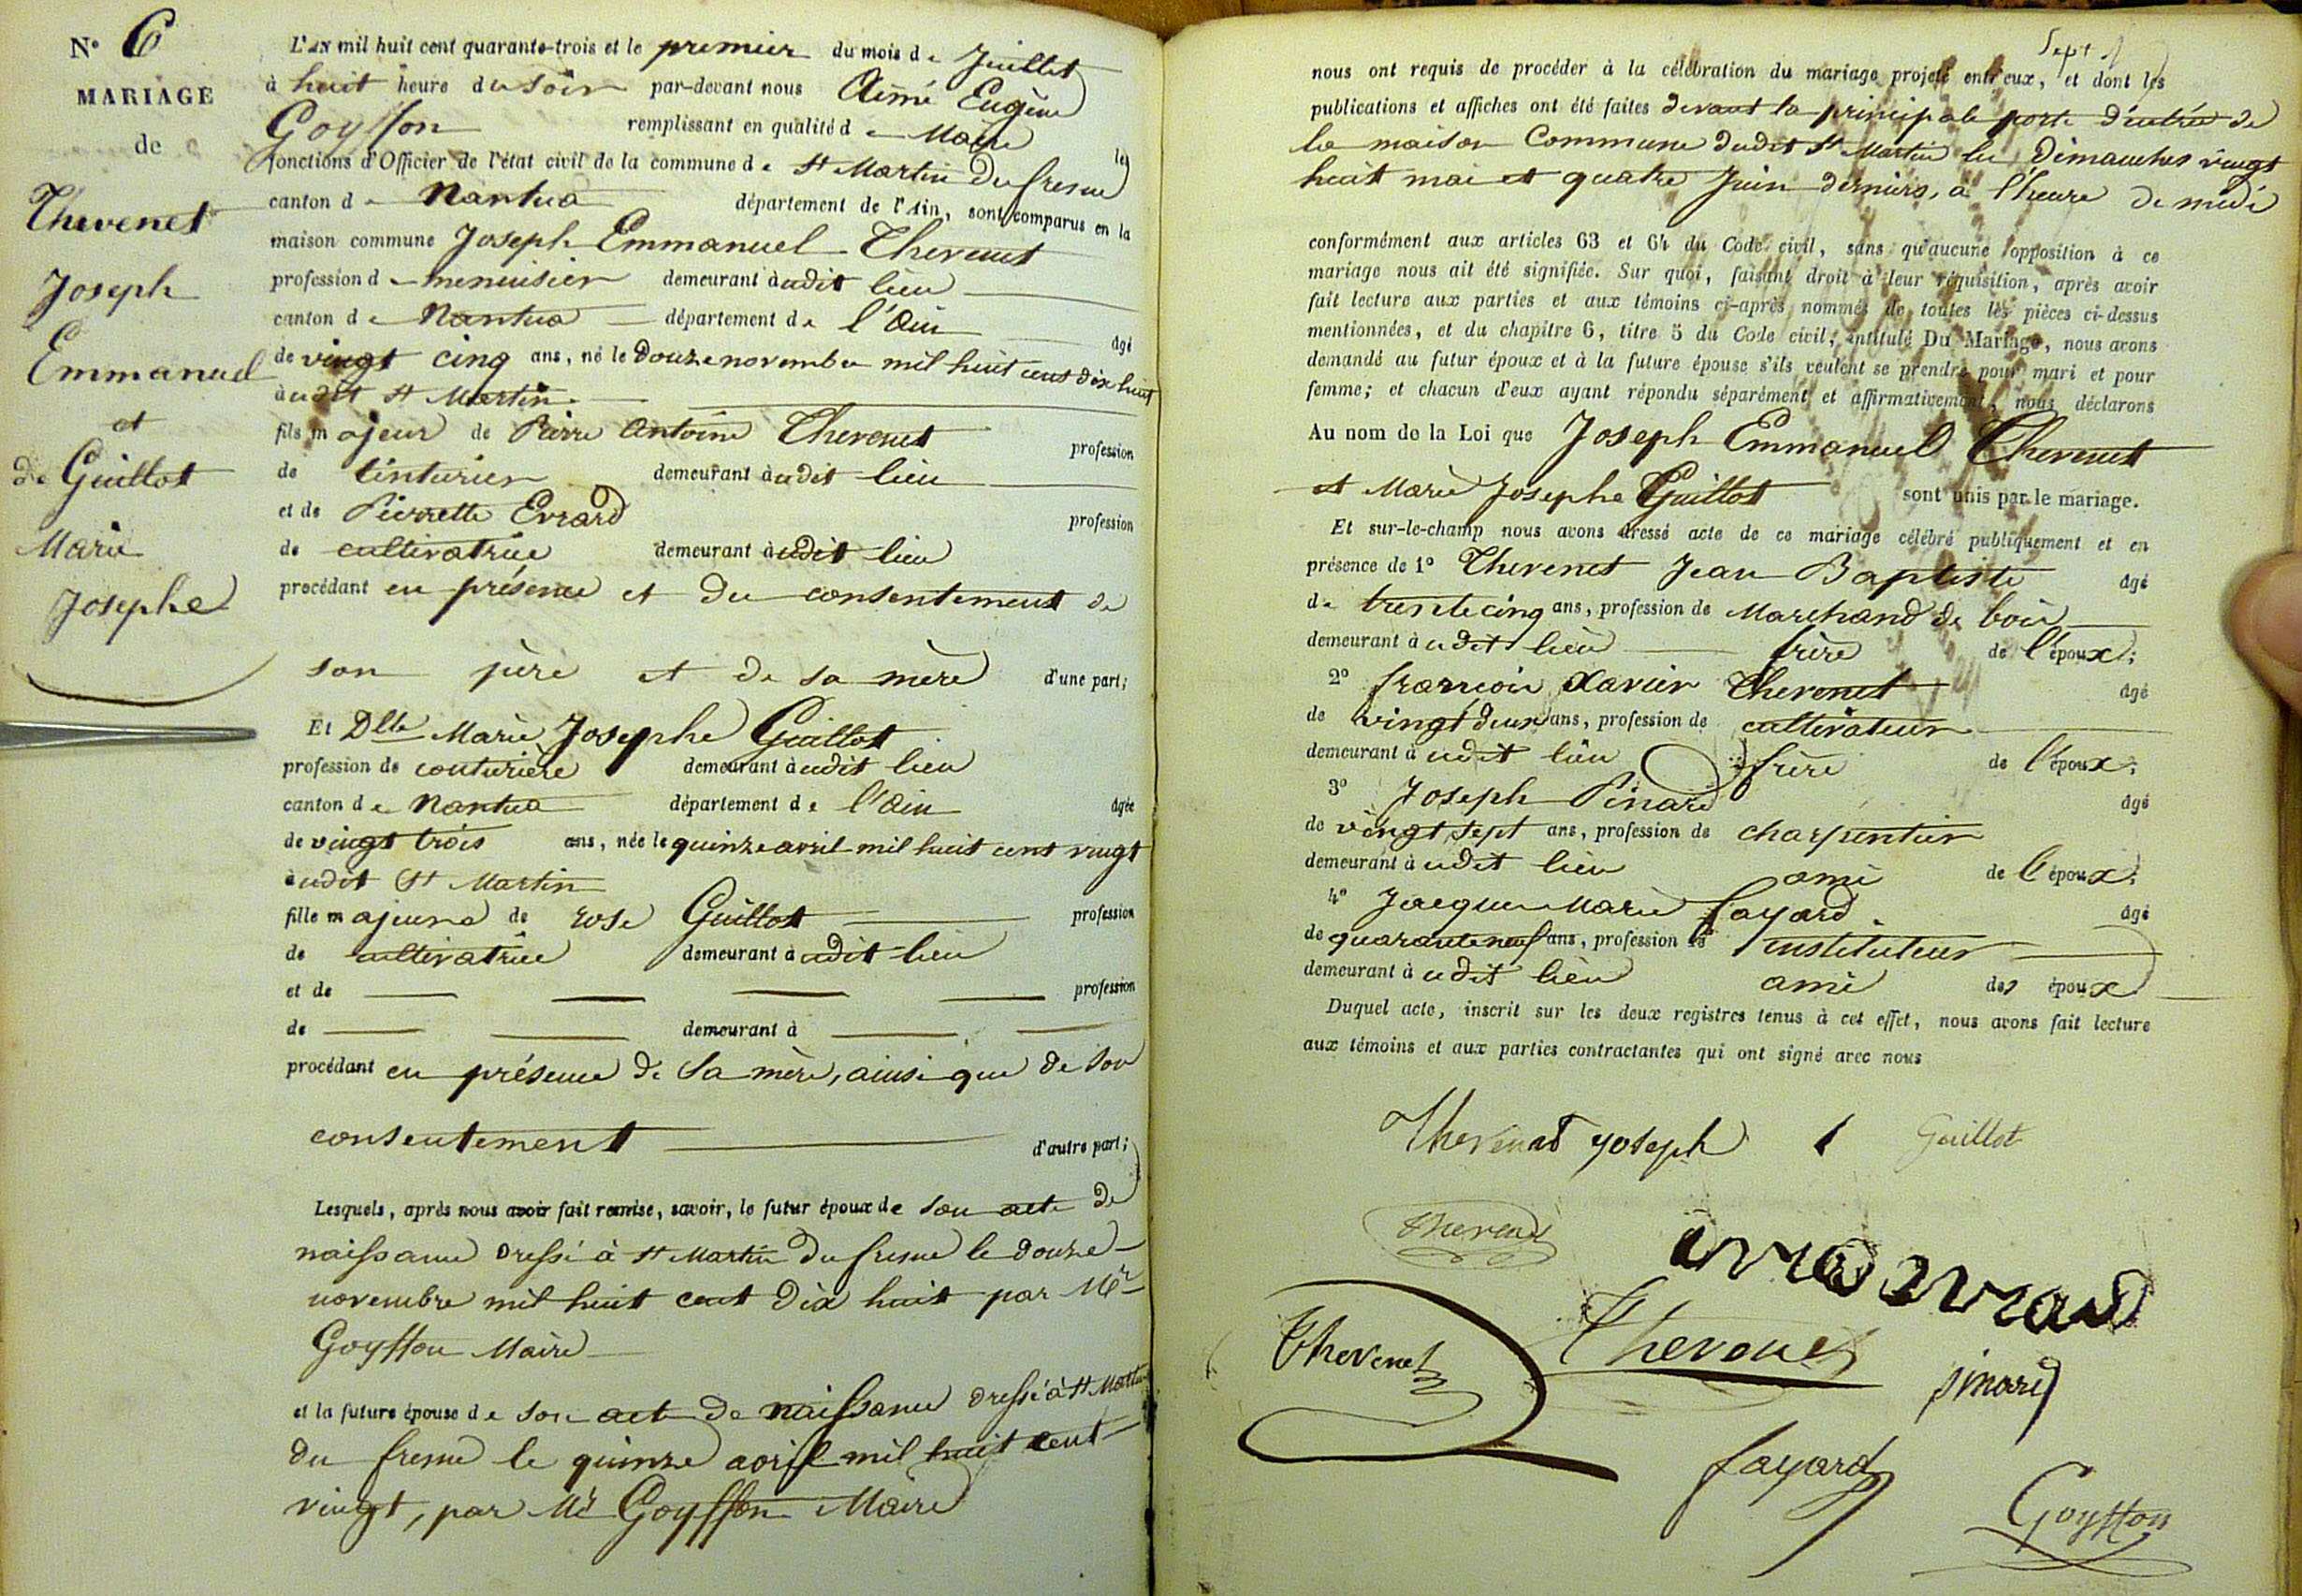 N° 6
MARIAGE
de
Thevenet
Joseph
Emmanuel
et
de Guillot
Marie
Josephe
L'AN mil huit cent quarante-trois et le premier du mois de Juillet
à huit heure du soir par-devant nous Aimé Eugène
Goyffon remplissant en qualité de Maire les
fonctions d'Officier de l'état civil de la commune de St Martin du fresne
canton de Nantua département de l'Ain, sont comparus en la
maison commune Joseph Emmanuel Thevenet
profession de menuisier demeurant àudit lieu
canton de Nantua département de l'Ain âgé
de vingt cinq ans, né le douze novembre mil huit cent dix huit
àudit St Martin
fils majeur de Pierre Antoine Thevenet profession
de tinturier demeurant àudit lieu
et de Pierrette Evrard profession
de cultivatrice demeurant àudit lieu
procédant en présence et du consentement de
son père et de sa mère d'une part;
Et Dlle Marie Josephe Guillot
profession de couturière demeurant àudit lieu
canton de Nantua département de l'Ain âgée
de vingt trois ans, née le quinze avril mil huit cent vingt
àudit St Martin
fille majeure de rose Guillot profession
de cultivatrice demeurant àudit lieu
et de profession
de demeurant à
procédant en présence de sa mère, ainsi que de son
consentement d'autre part;
Lesquels, après nous avoir fait remise, savoir, le futur époux de son acte de
naissance dressé à St Martin du fresne le douze
novembre mil huit cent dix huit par Mr
Goyffon Maire
et la future épouse de son acte de naissance dressé à St Martin
du fresne le quinze avril mil huit cent
vingt, par Mr Goyffon Maire
Sept
nous ont requis de procéder à la célébration du mariage projeté entr'eux, et dont les
publications et affiches ont été faites devant la principale porte d'entrée de
la maison Commune dudit St Martin les Dimanches vingt
huit mai et quatre Juin derniers, à l'heure de midi
conformément aux articles 63 et 64 du Code civil, sans qu'aucune opposition à ce
mariage nous ait été signifiée. Sur quoi, faisant droit à leur réquisition, après avoir
fait lecture aux parties et aux témoins ci-après nommés de toutes les pièces ci-dessus
mentionnées, et du chapitre 6, titre 5 du Code civil, intitulé Du Mariage, nous avons
demandé au futur époux et à la future épouse s'ils veulent se prendre pour mari et pour
femme; et chacun d'eux ayant répondu séparément et affirmativement, nous déclarons
Au nom de la Loi que Joseph Emmanuel Thevenet
et Marie Josephe Guillot sont unis par le mariage.
Et sur-le-champ nous avons dressé acte de ce mariage célébré publiquement et en
présence de 1° Thevenet Jean Baptiste âgé
de trente cinq ans, profession de Marchand de bois
demeurant àudit lieu frère de l'époux;
2° françois Xavier Thevenet âgé
de vingt deux ans, profession de cultivateur
demeurant àudit lieu frère de l'époux;
3° Joseph Pinard âgé
de vingt sept ans, profession de charpentier
demeurant àudit lieu ami de l'époux;
4° Jacques Marie fayard âgé
de quarante neuf ans, profession de instituteur
demeurant àudit lieu ami des époux
Duquel acte, inscrit sur les deux registres tenus à cet effet, nous avons fait lecture
aux témoins et aux parties contractantes qui ont signé avec nous
Thevenet joseph Guillot
thevenet
Thevenet Thevenet pinard
fayard
Goyffon